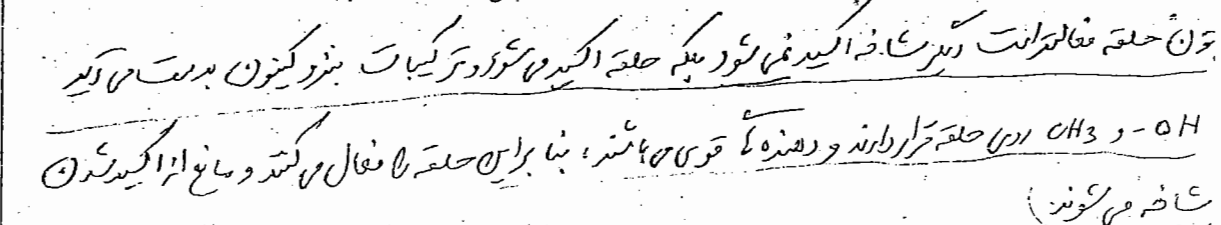 چون حلقه فعالتر است دیگر شاخه اکسید نمی شود بلکه حلقه اکسید می شود و ترکیبات بنزوکینون بدست می آید
OH - و CH3 روی حلقه قرار دارند و دهنده قوی می باشند، بنابراین حلقه را فعال می کنند و مانع از اکسید شدن
شاخه می شوند)